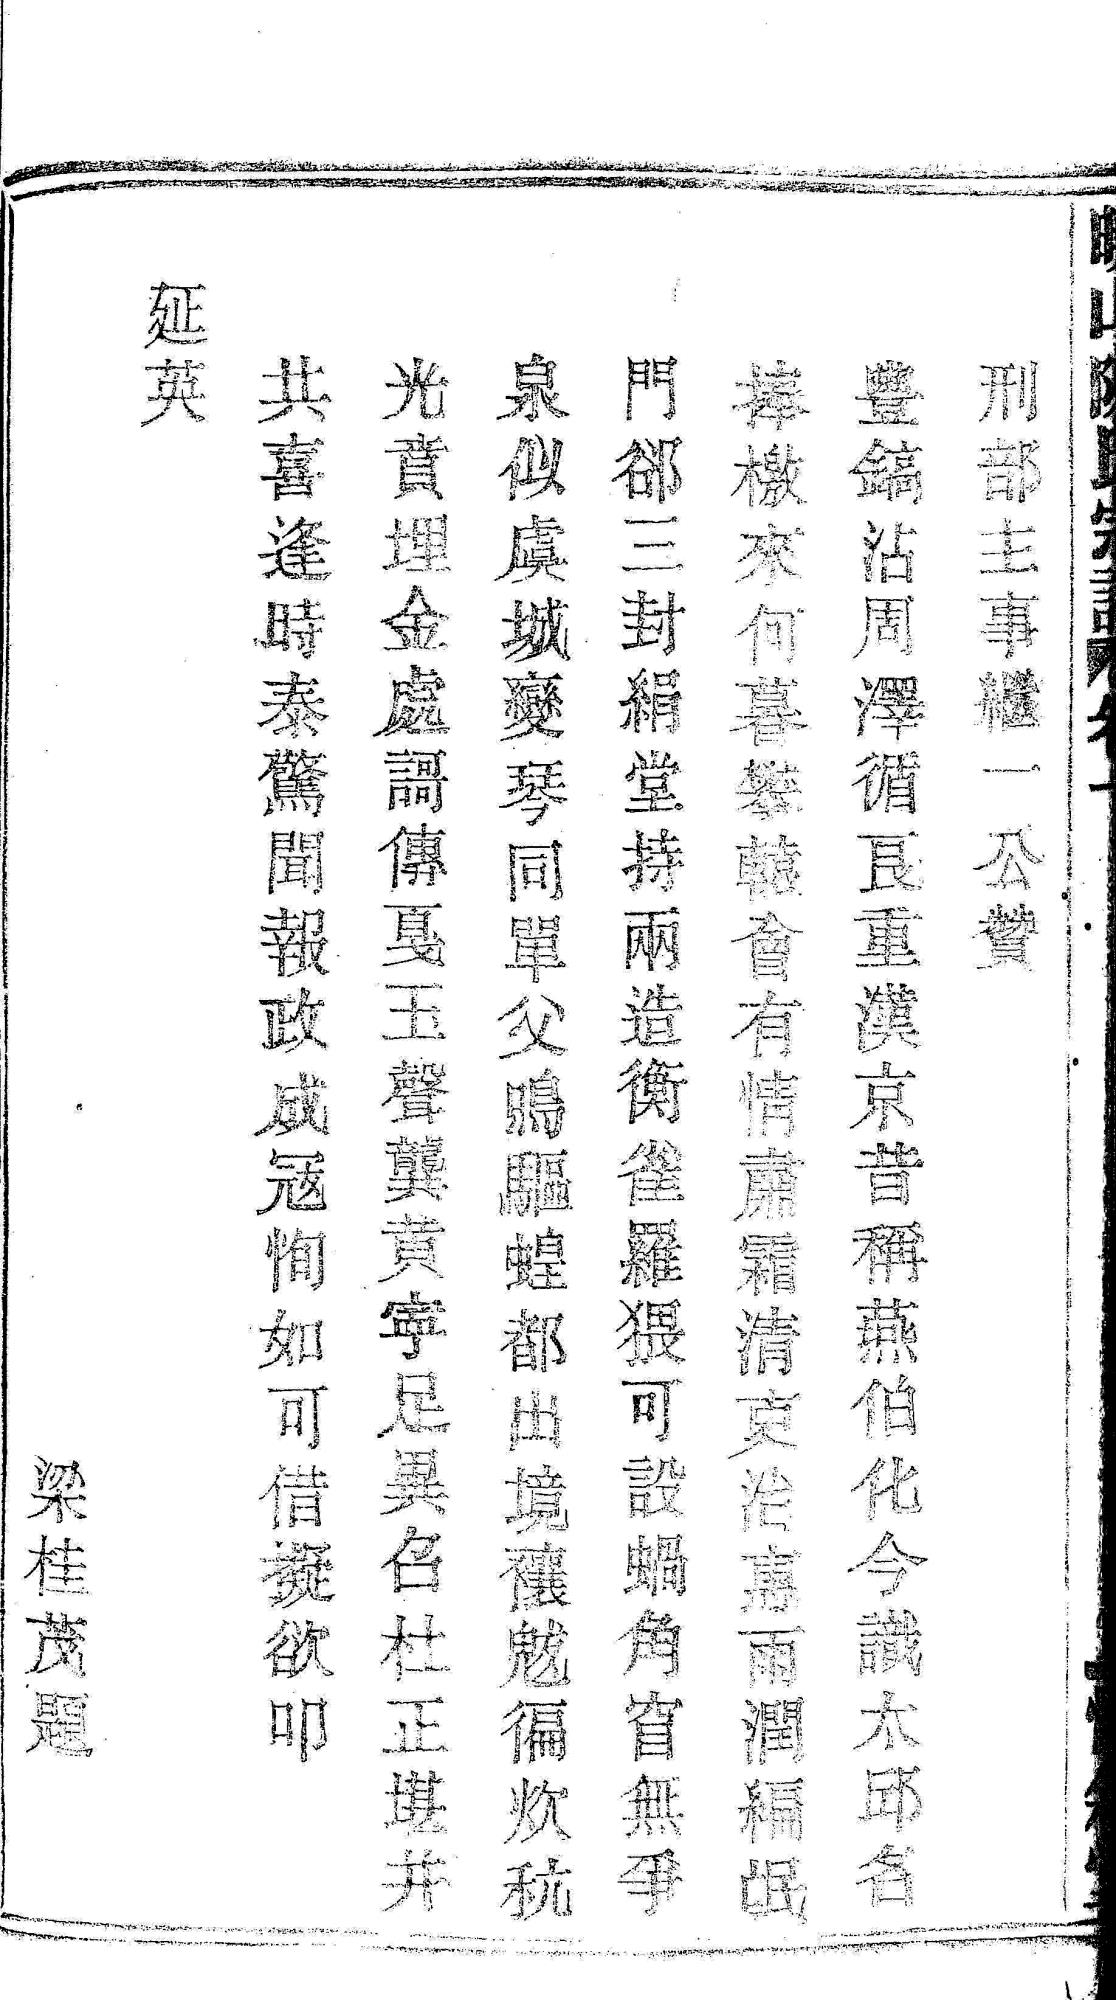 刑部主事繼一公贊
豐鎬沾周澤循良重漢京昔稱燕伯化今識太邱名
捧檄來何暮攀轅會有情肅霜清吏治惠雨潤編氓
門郤三封絹堂持兩造衡雀羅猥可設蝸角官無爭
泉似虞城變琴同單父鴉驅蝗都出境禳魃徧炊秔
光賁埋金處謌傳戛玉聲龔黄寧足異召杜正堪并
共喜逢時泰驚聞報政成冦恂如可借擬欲叩
延英
梁桂茂題